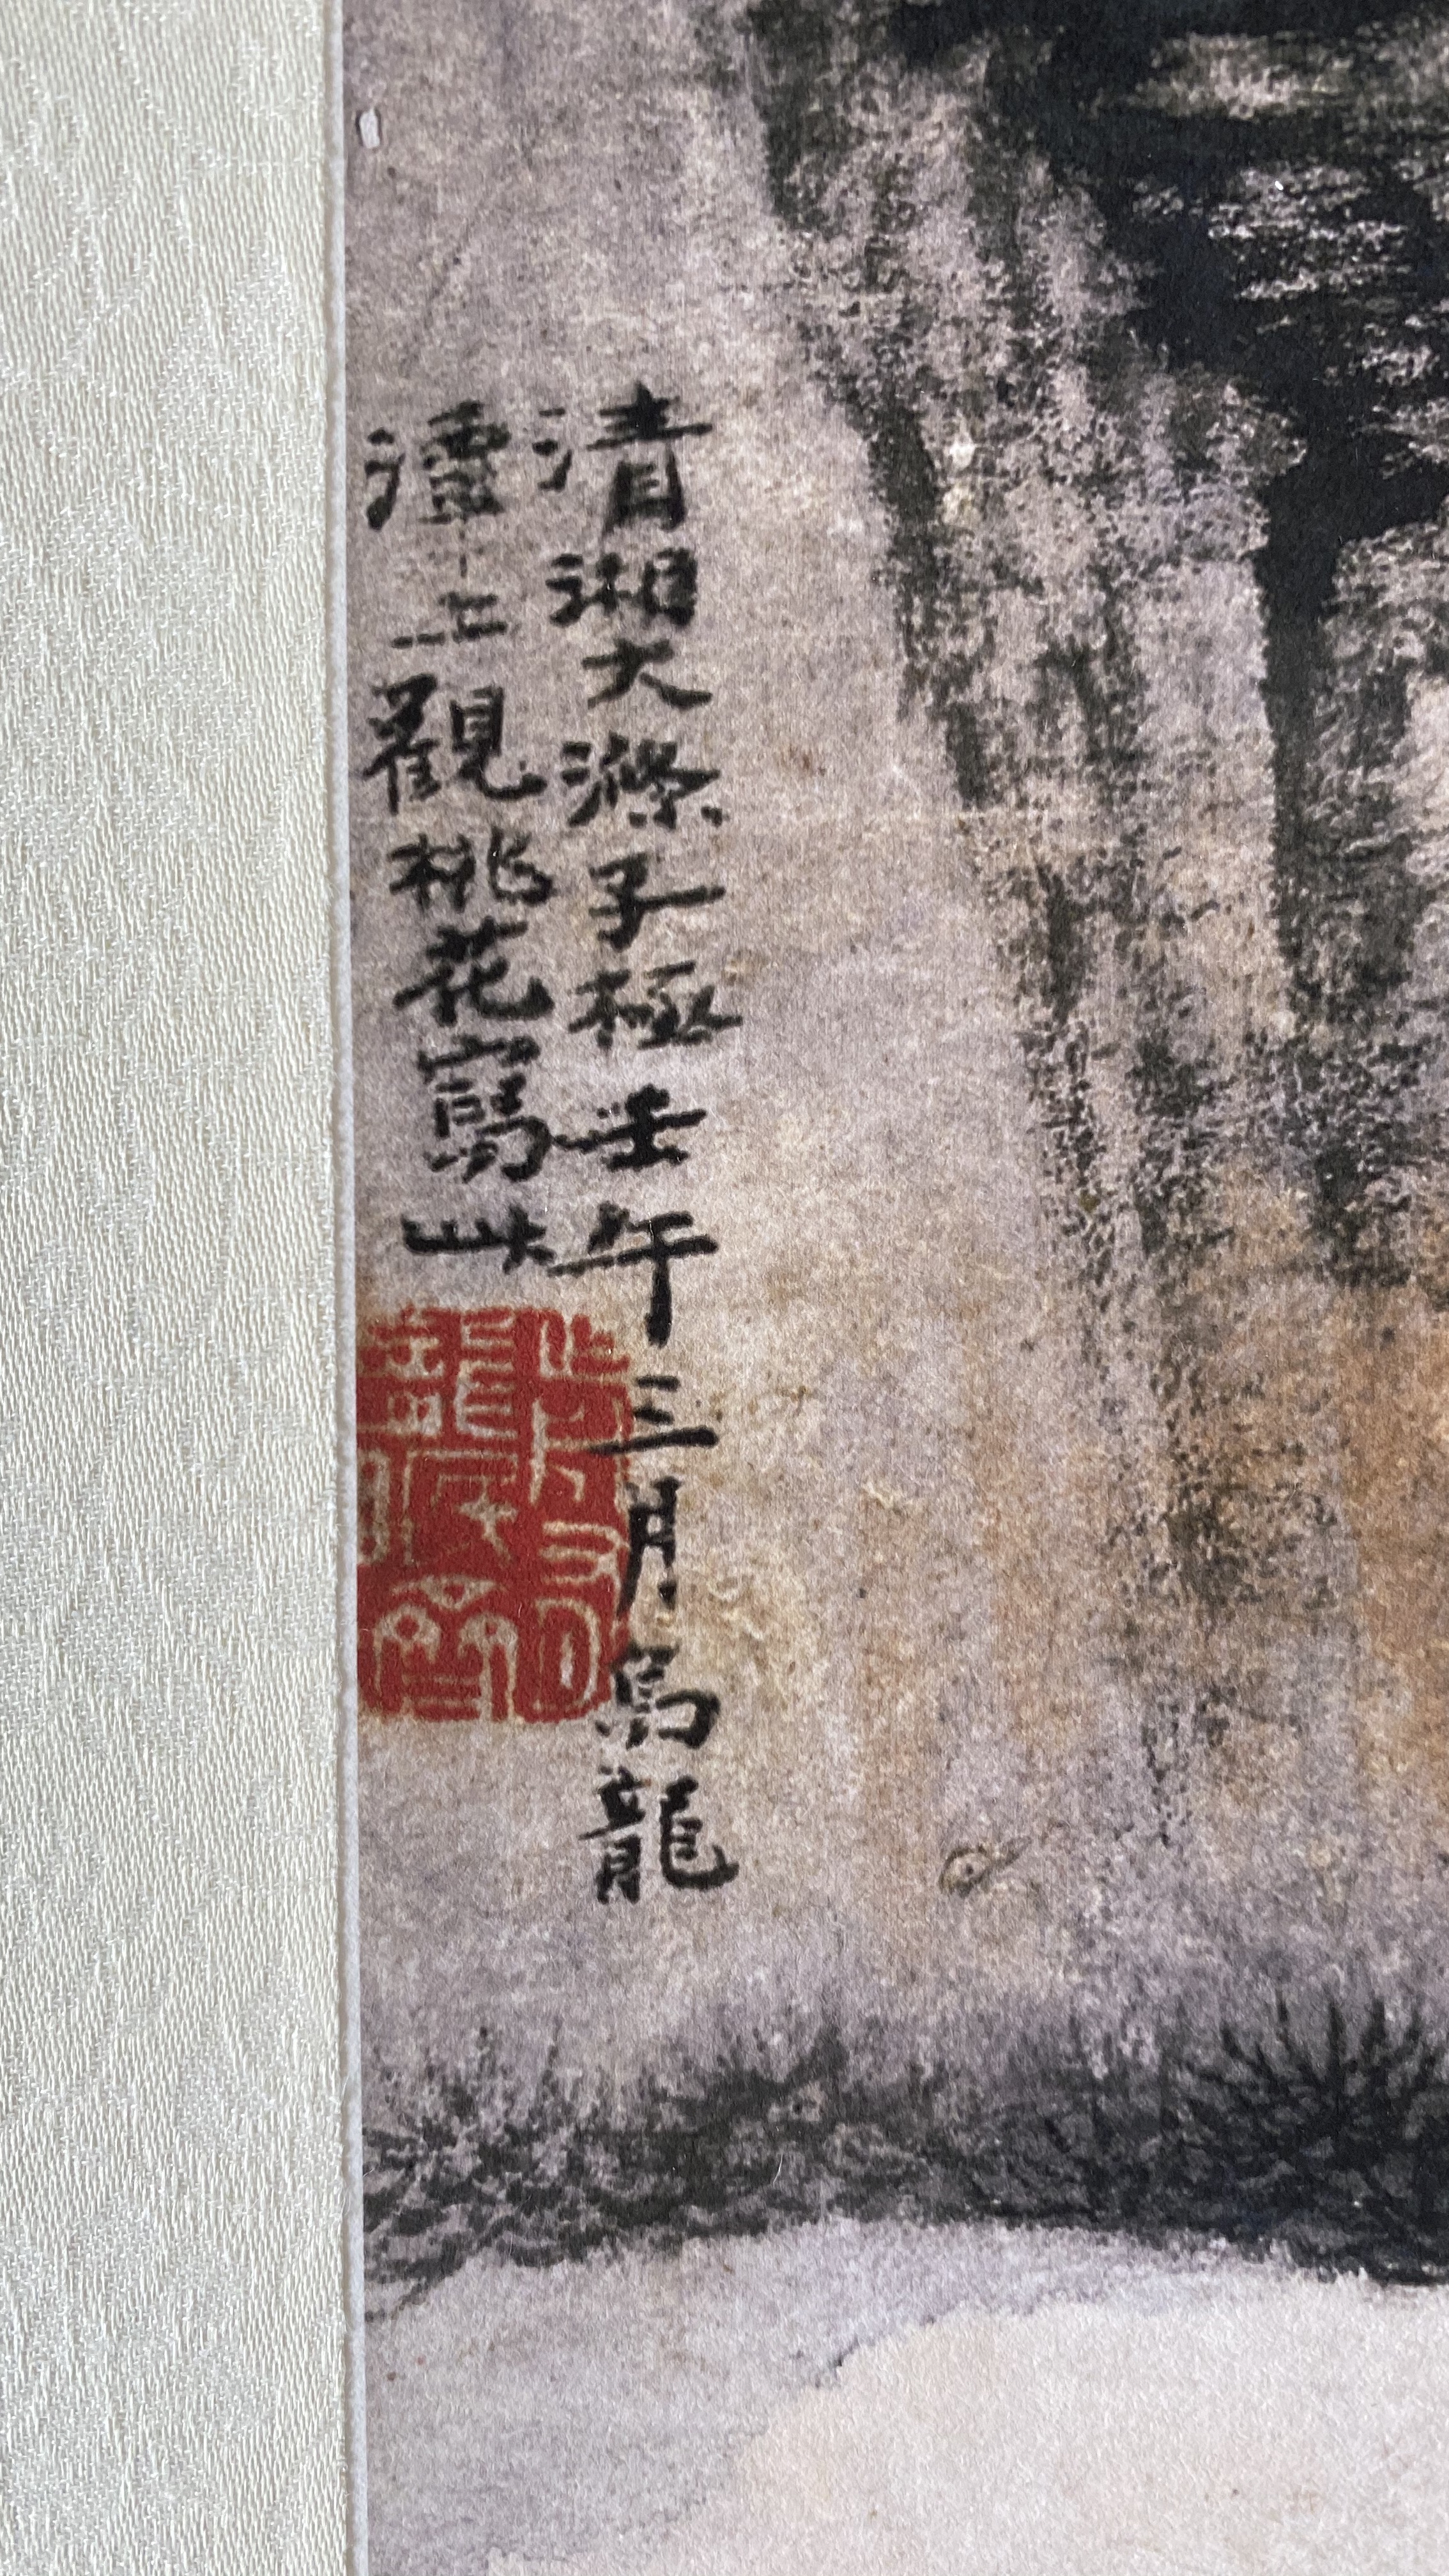 清湘大滌子極壬午三月烏龍
潭上觀桃花寫此